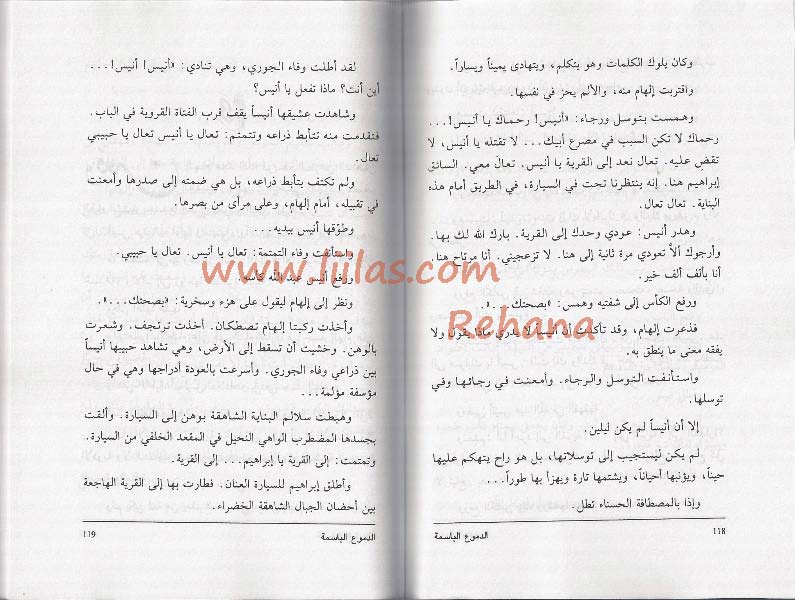 وكان يلوك الكلمات وهو يتكلم، ويتهادى يميناً ويساراً.
واقتربت إلهام منه، والألم يحز في نفسها.
وهمست بتوسل ورجاء: «أنيس! رحماك يا أنيس!...
رحماك لا تكن السبب في مصرع أبيك... لا تقتله يا أنيس، لا
تقض عليه. تعال نعد إلى القرية يا أنيس. تعال معي. السائق
إبراهيم هنا. إنه ينتظرنا تحت في السيارة، في الطريق أمام هذه
البناية. تعال تعال.
وهدر أنيس: عودي وحدك إلى القرية. بارك الله لك بها.
وأرجوك ألاّ تعودي مرة ثانية إلى هنا. لا تزعجيني. أنا مرتاح هنا
أنا بألف ألف خير.
ورفع الكأس إلى شفتيه وهمس: «بصحتك...».
فذعرت إلهام، وقد تأكدت أن أنيساً لا يدري ماذا يقول ولا
يفقه معنى ما ينطق به.
واستأنفت التوسل والرجاء. وأمعنت في رجائها وفي
توسلها.
إلا أن أنيساً لم يكن ليلين.
لم يكن ليستجيب إلى توسلاتها، بل هو راح يتهكم عليها
حيناً، ويؤنبها أحياناً، ويشتمها تارة ويهزأ بها طوراً...
وإذا بالمصطافة الحسناء تطل.
118 الدموع الباسمة
لقد أطلت وفاء الجوري، وهي تنادي: «أنيس! أنيس!...
أين أنت؟ ماذا تفعل يا أنيس؟
وشاهدت عشيقها أنيساً يقف قرب الفتاة القروية في الباب.
فتقدمت منه تتأبط ذراعه وتتمتم: تعال يا أنيس تعال يا حبيبي
تعال.
ولم تكتف بتأبط ذراعه، بل هي ضمته إلى صدرها وأمعنت
في تقبيله، أمام إلهام، وعلى مرأى من بصرها.
وطوّقها أنيس بيديه...
واستأنفت التمتمة: تعال يا أنيس. تعال يا حبيبي.
ورفع أنيس عبد الله كأسه.
ونظر إلى إلهام ليقول على هزء وسخرية: «بصحتك...».
وأخذت ركبتا إلهام تصطكان. أخذت ترتجف. وشعرت
بالوهن. وخشيت أن تسقط إلى الأرض، وهي تشاهد حبيبها أنيساً
بين ذراعي وفاء الجوري. وأسرعت بالعودة أدراجها وهي في حال
مؤسفة مؤلمة...
وهبطت سلالم البناية الشاهقة بوهن إلى السيارة. وألقت
بجسدها المضطرب الواهي النحيل في المقعد الخلفي من السيارة.
وتمتمت: إلى القرية يا إبراهيم... إلى القرية.
وأطلق إبراهيم للسيارة العنان. فطارت بها إلى القرية الهاجعة
بين أحضان الجبال الشاهقة الخضراء.
الدموع الباسمة 119
www.liilas.com
Rehana